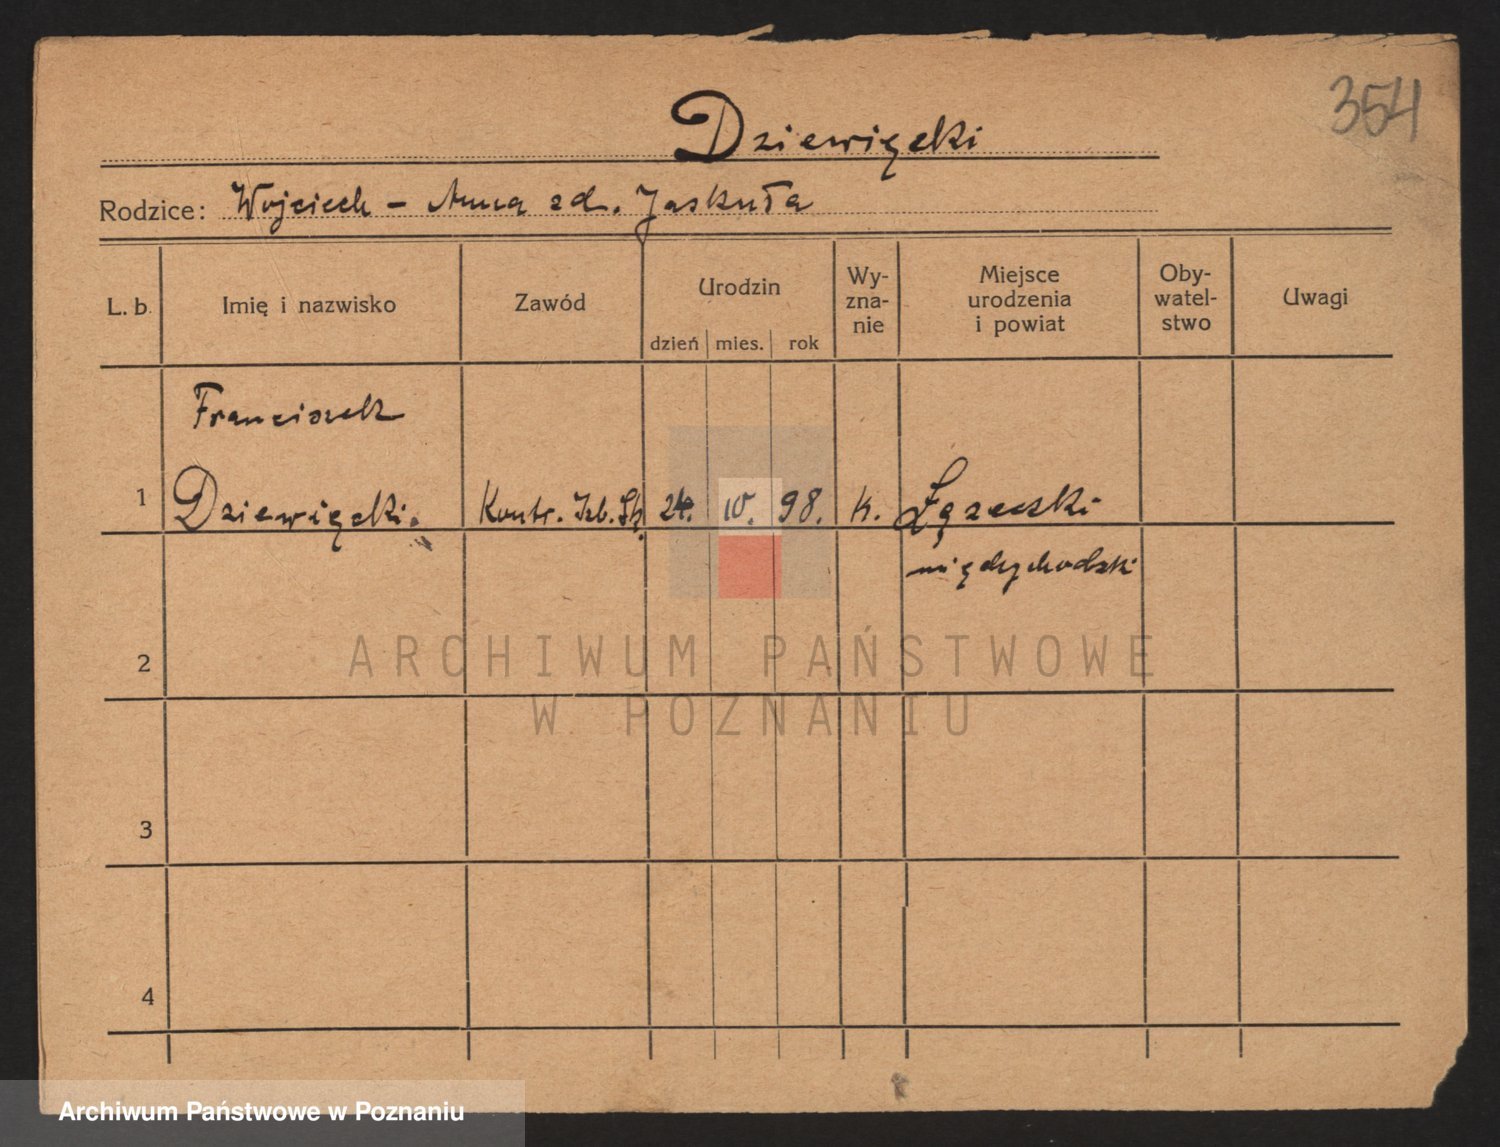 354
Dzięwięcki
Rodzice: Wojciech - Anna zd. Jaskuła
L. b. Imię i nazwisko Zawód Urodzin Wyznanie Miejsce urodzenia i powiat Obywatelstwo Uwagi
dzień mies. rok
Franciszek
1 Dziewięcki. Kontr. Izb. Sk. 24. IV. 98. k.
międzychodzki
2
3
4
ARCHIWUM PAŃSTWOWE
W POZNANIU
Archiwum Państwowe w Poznaniu